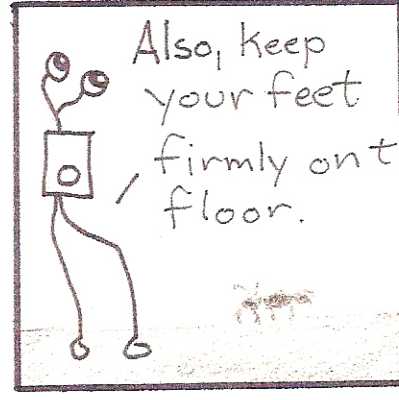 Also, keep
your feet
firmly on t
floor.